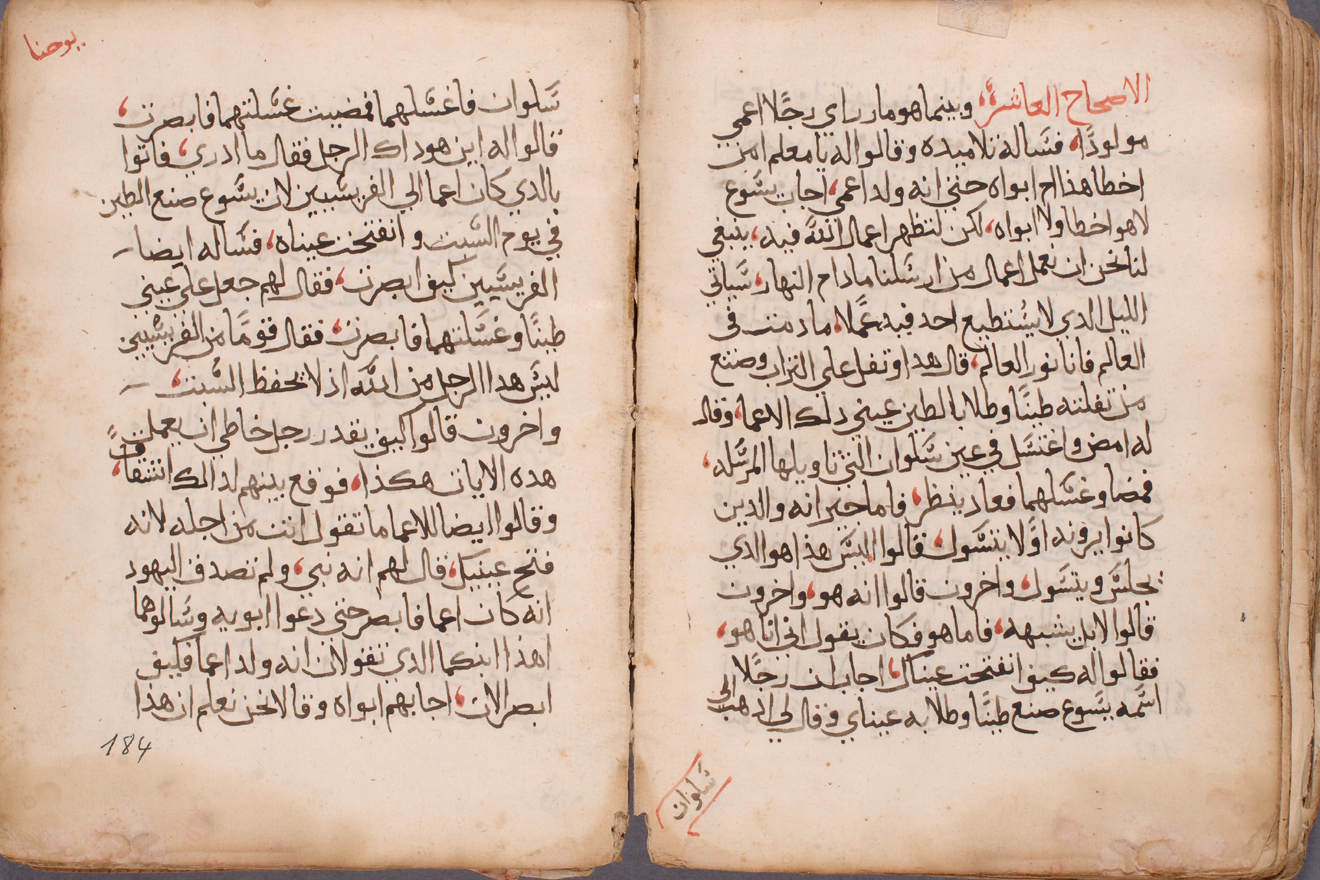 الاصحاح العاشر وبينما هو مار راي رجلا اعمي
مولودًا، فساله تلاميده وقالوا له يا معلم امن
اخطا هذا ام ابواه حتي انه ولد اعمي، اجاب يسوع
لا هو اخطا ولا ابواه، لكن لتظهر اعمال الله فيه، ينبغي
لنا نحن ان نعمل اعمال من ارسلنا ما دام النهار، سياتي
الليل الدي لا يستطيع احد فيه عملا، ما دمت في
العالم فانا نور العالم، قال هدا وتفل علي التراب وصنع
من تفلته طينًا وطلا بالطين عيني دلك الاعما، وقال
له امض واغتسل في عين سلوان التي تاويلها المرسله،
فمضا وغسلهما فعاد ينظر، فاما جيرانه والدين
كانوا يرونه اولا يتسول، قالوا اليس هذا هو الدي
يجلس ويتسول، واخرون قالوا انه هو، واخرون
قالوا لا بل يشبهه، فاما هو فكان يقول اني انا هو،
فقالوا له كيف انفتحت عيناك، اجاب ان رجلًا
اسمه يسوع صنع طينًا وطلا به عيناي وقال لي ادهب الي
سلوان
يوحنا
سلوان فاغسلهما فمضيت غسلتهما فابصرت،
قالوا له اين هو داك الرجل فقال ما ادري، فاتوا
بالدي كان اعما الي الفريسيين لان يسوع صنع الطين
في يوم السبت وانفتحت عيناه، فساله ايضا
الفريسيين كيف ابصرت، فقال لهم جعل علي عيني
طينًا وغسلتهما فابصرت، فقال قومًا من الفريسيين
ليس هدا الرجل من الله اذ لا يحفظ السبت،
واخرون قالوا كيف يقدر رجل خاطي ان يعمل
هده الايات هكذا، فوقع بينهم لدالك انشقاقًا،
وقالوا ايضا للاعما ما تقول انت من اجله لانه
فتح عينيك، قال لهم انه نبي، ولم تصدق اليهود
انه كان اعما فابصر حتي دعوا ابويه وسالوهما
اهذا ابنكما الدي تقولان انه ولد اعما فكيف
ابصر الان، اجابهم ابواه وقالا نحن نعلم ان هذا
184